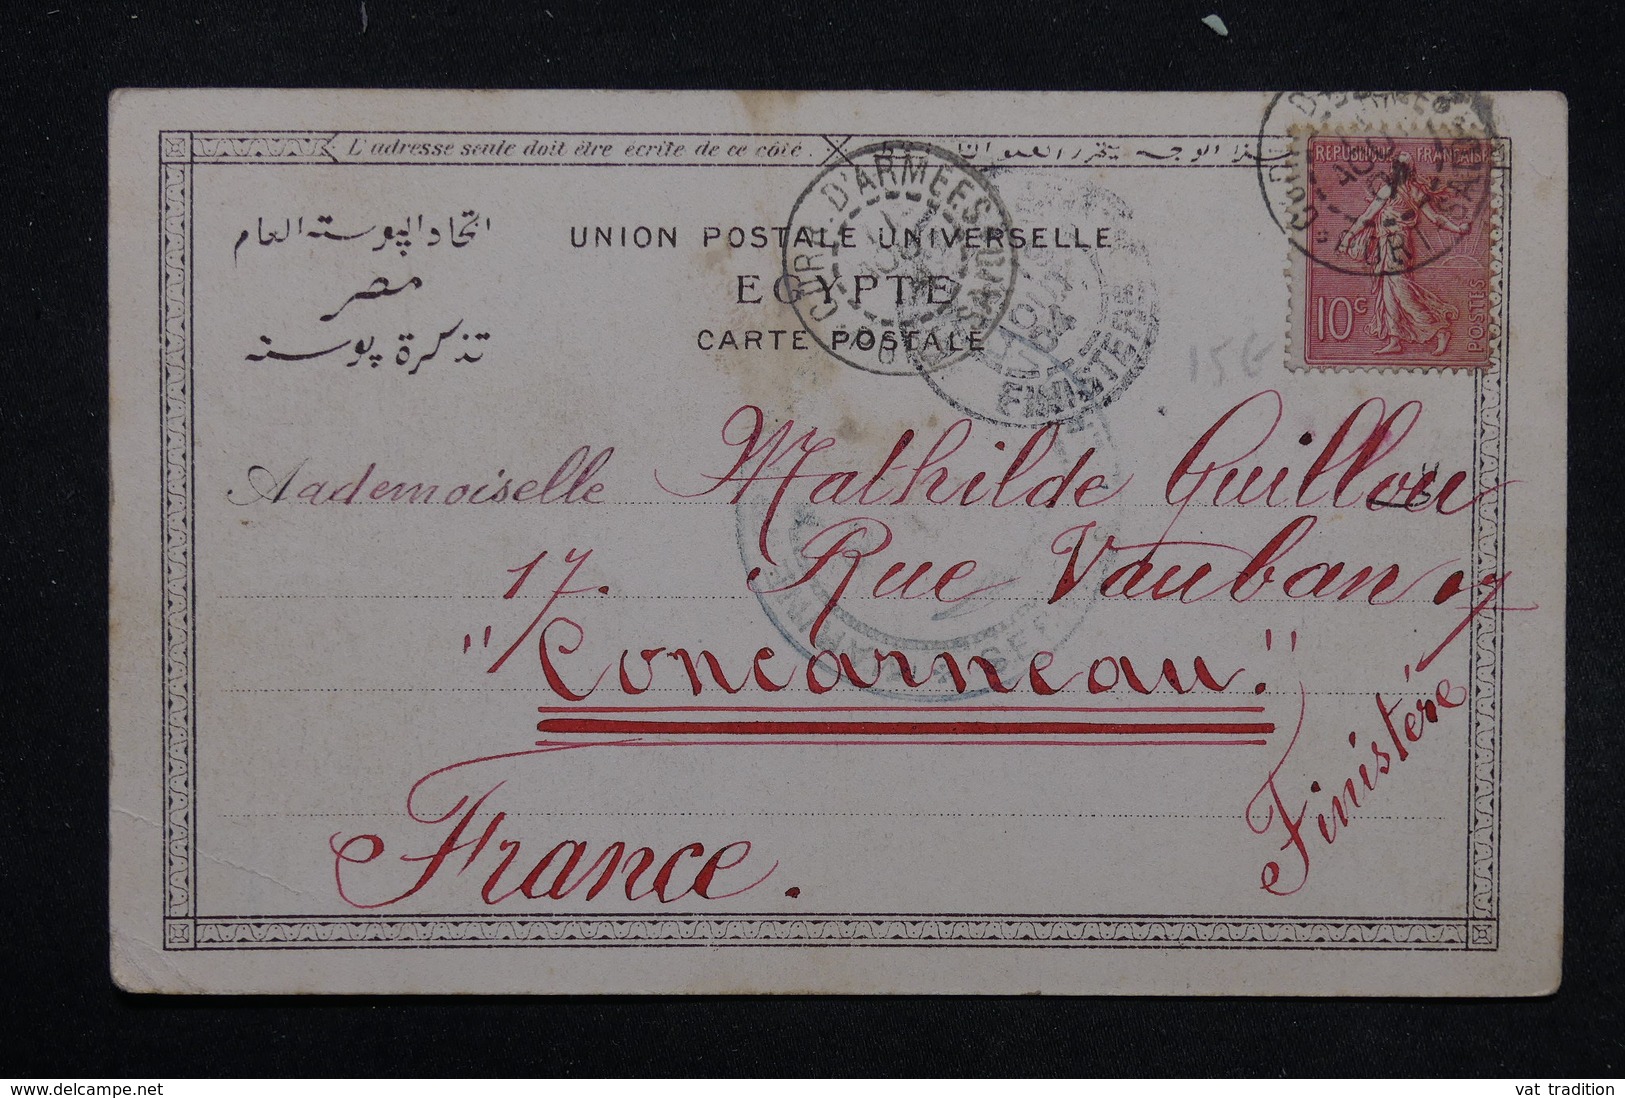 L'adresse seule doit être écrite de ce côté.
اتحاد البوسته العام
مصر
تذكرة بوسته
UNION POSTALE UNIVERSELLE
EGYPTE
CARTE POSTALE
CORR. D'ARMEES
FINISTERE
REPUBLIQUE FRANÇAISE
10c
POSTES
CORR. D'ARMEES
15€
Mademoiselle Mathilde Guillou
17. Rue Vauban 17
"Concarneau."
Finistère
France.
delcampe.net
vat tradition